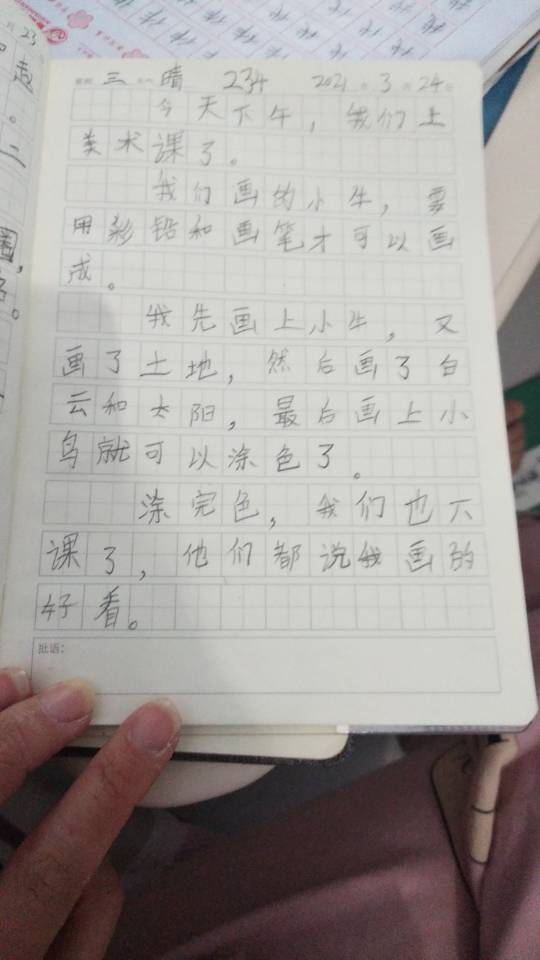 星期 三 天气 晴 234 2021 年 3 月 24 日
今天下午，我们上
美术课了。
我们画的小牛，要
用彩铅和画笔才可以画
成。
我先画上小牛，又
画了土地，然后画了白
云和太阳，最后画上小
鸟就可以涂色了。
涂完色，我们也下
课了，他们都说我画的
好看。
批语：